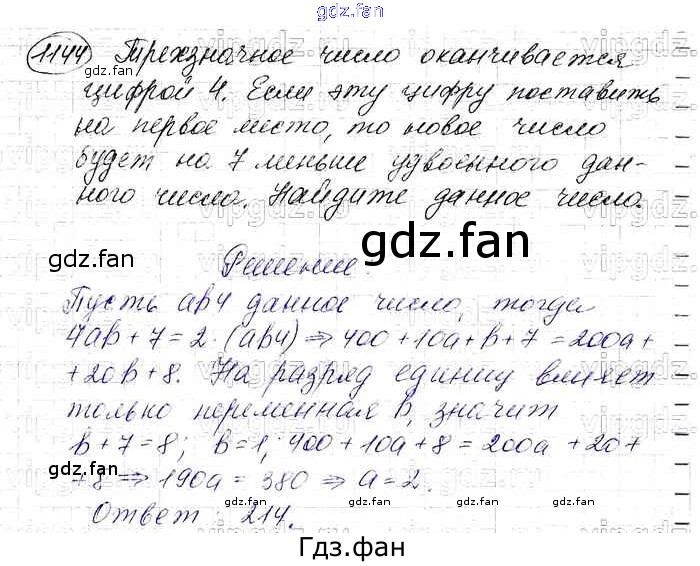 gdz.fan
1144 Трехзначное число оканчивается
gdz.fan
цифрой 4. Если эту цифру поставить
на первое место, то новое число
будет на 7 меньше удвоенного дан-
ного числа. Найдите данное число.
gdz.fan
Решение.
gdz.fan
Пусть ab4 данное число, тогда
4ab + 7 = 2 · (ab4) ⇒ 400 + 10a + b + 7 = 200a +
+ 20b + 8. На разряд единиц влияет
только переменная b, значит
b + 7 = 8; b = 1; 400 + 10a + 8 = 200a + 20 +
+ 8 ⇒ 190a = 380 ⇒ a = 2.
gdz.fan
gdz.fan
gdz.fan
Ответ: 214.
Гдз.фан